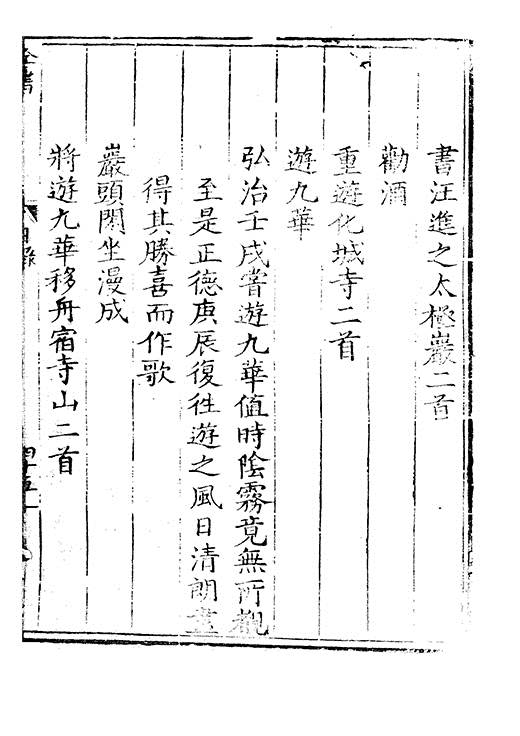 書汪進之太極巖二首
勸酒
重遊化城寺二首
遊九華
弘治壬戌嘗遊九華值時陰霧竟無所覩
至是正德庚辰復徃遊之風日清朗盡
得其勝喜而作歌
巖頭閑坐漫成
將遊九華移舟宿寺山二首
全書
目錄